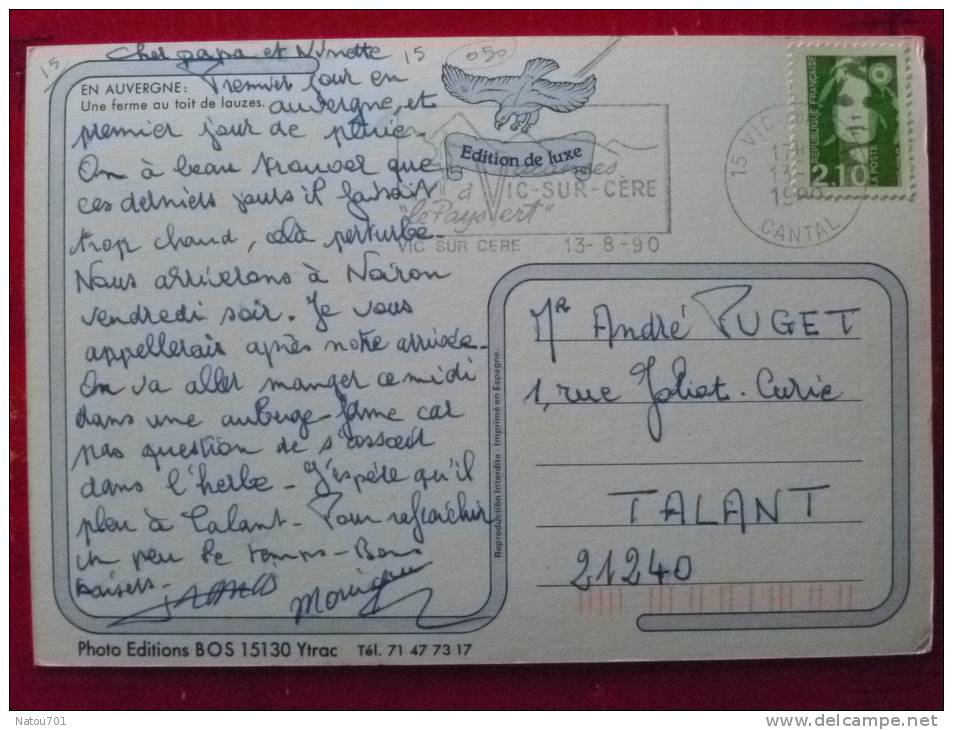 15
Cher papa et Ninette
15
050
EN AUVERGNE:
Une ferme au toit de lauzes.
Premier jour en
auvergne, et
premier jour de pluie.
On à beau trouver que
ces derniers jours il faisait
trop chaud, celà perturbe.
Nous arriverons à Noiron
vendredi soir. Je vous
appellerais après notre arrivée.
On va aller manger ce midi
dans une auberge-ferme car
pas question de s'assoeir
dans l'herbe - J'espère qu'il
pleu à Talant - Pour rafraichir
un peu le temps - Bons
baisers -
Monique
Edition de luxe
à VIC-SUR-CÈRE
"le Pays Vert"
VIC SUR CERE 13-8-90
15 VIC
1990
CANTAL
REPUBLIQUE FRANÇAISE
2,10
LA POSTE
Mr André PUGET
1, rue Joliot-Curie
TALANT
21240
Reproduction Interdite - Imprimé en Espagne.
Photo Editions BOS 15130 Ytrac Tél. 71 47 73 17
Natou701
delcampe.net